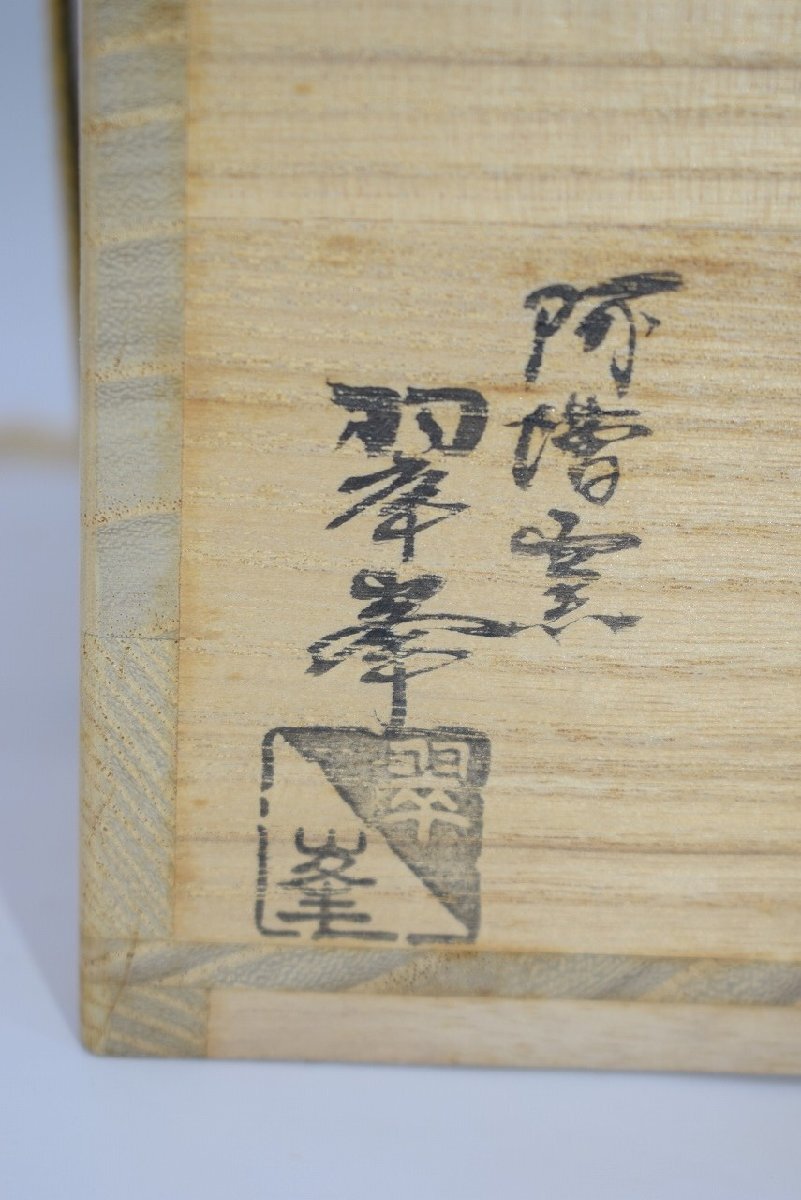 阿漕窯
翠峯
翠峯